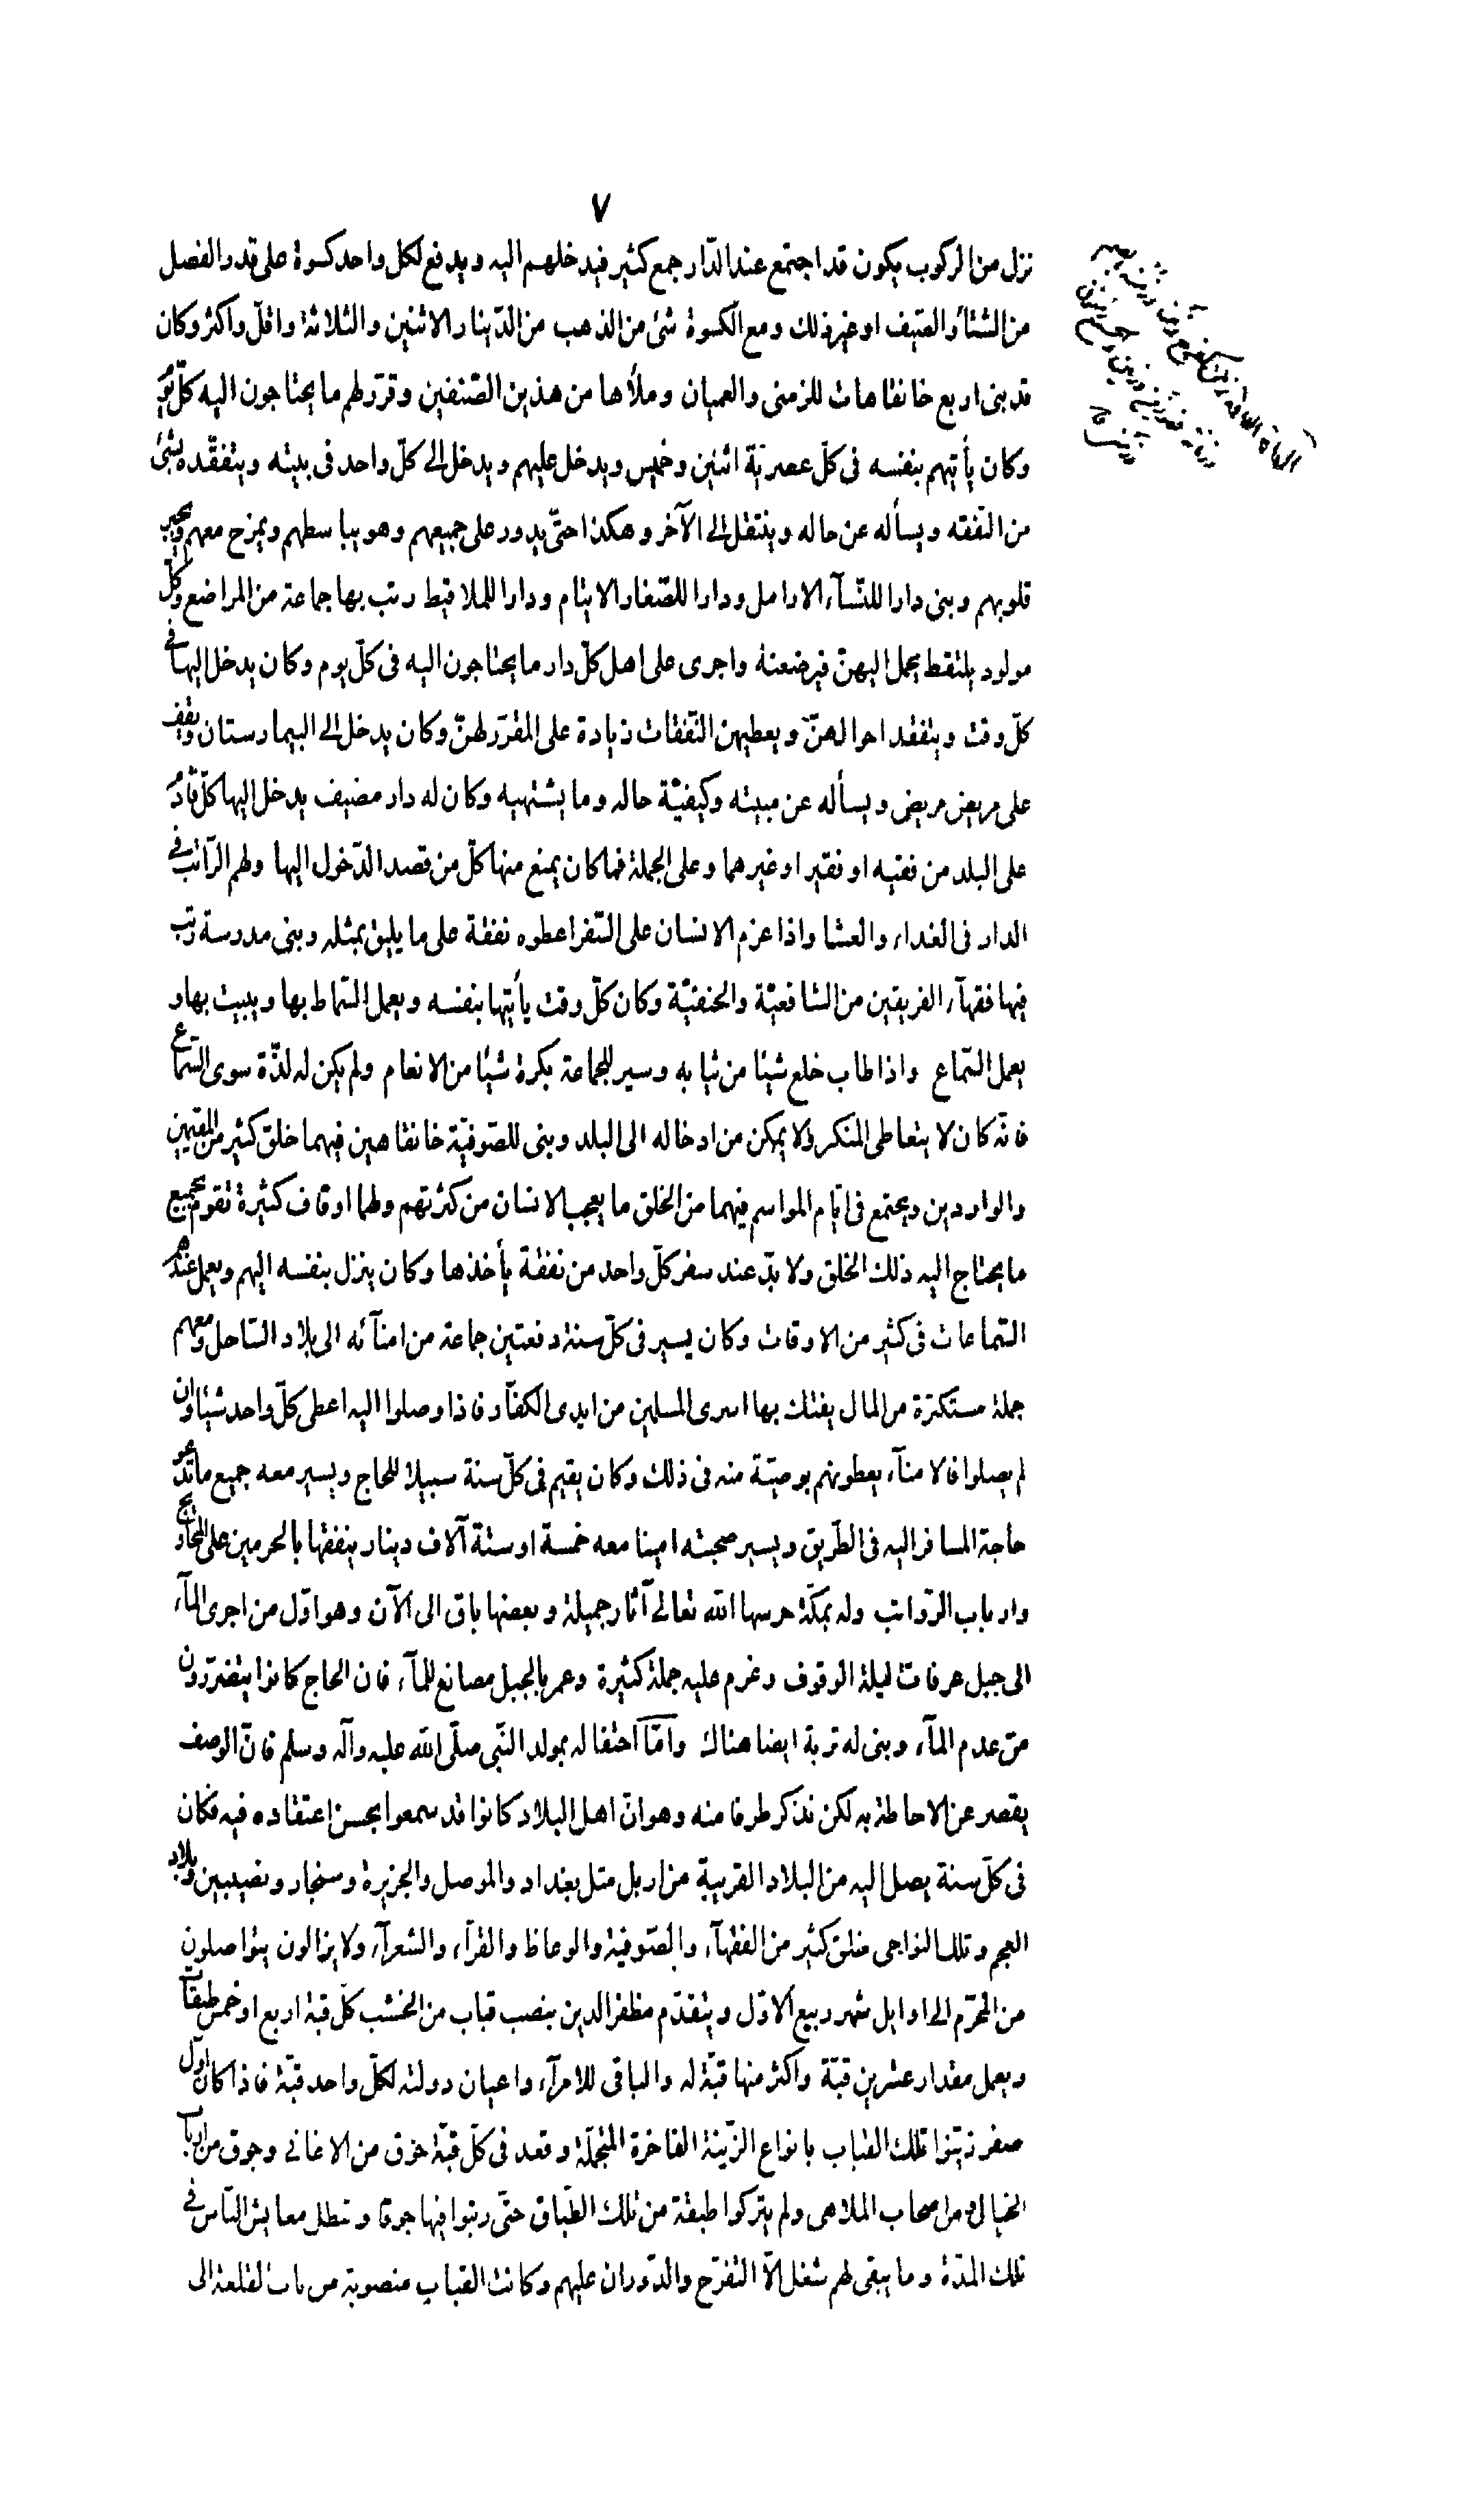 ٧
نزل من الركوب يكون قد اجتمع عند الدّار جمع كثير فيدخلهم اليه ويدفع لكل واحد كسوة على قدر الفصل
من الشتأ والصّيف او غير ذلك ومع الكسوة شئ من الذهب من الدّينار والاثنين والثلاثة واقلّ واكثر وكان
قد بنى اربع خانقاهات للزمنى والعميان وملأها من هذين الصّنفين وقرّر لهم ما يحتاجون اليه كلّ يوم
وكان يأتيهم بنفسه فى كلّ عصريّة اثنين وخميس ويدخل عليهم ويدخل الى كلّ واحد فى بيته ويتفقّده بشئ
من النّفقه ويسأله عن حاله وينتقل الى الآخر وهكذا حتّى يدور على جميعهم وهو يباسطهم ويمزح معهم ويجبر
قلوبهم وبنى دارا للنّسآء الارامل ودارا للصّغار الايتام ودارا للملاقيط رتب بها جماعة من المراضع وكلّ
مولود يلتقط يحمل اليهنّ فيرضعنه واجرى على اهل كلّ دار ما يحتاجون اليه فى كلّ يوم وكان يدخل اليها فى
كلّ وقت ويتفقد احوالهنّ ويعطيهن النّفقات زيادة على المقرّر لهنّ وكان يدخل الى البيمارستان ويقف
على مريض مريض ويسأله عن مبيته وكيفيّة حاله وما يشتهيه وكان له دار مضيف يدخل اليها كلّ قادم
على البلد من فقيه او فقير او غيرهما وعلى الجملة فما كان يمنع منها كلّ من قصد الدّخول اليها ولهم الرّاتب فى
الدار فى الغداء والعشا واذا عزم الانسان على السّفر اعطوه نفقة على ما يليق بمثله وبنى مدرسة رتب
فيها فقهآء الفريقين من الشافعيّة والحنفيّة وكان كلّ وقت يأتيها بنفسه ويعمل السّماط بها ويبيت بها و
يعمل السّماع واذا طاب خلع شيئا من ثيابه وسير للجماعة بكرة شيئا من الانعام ولم يكن له لذّة سوى السّماع
فانّه كان لا يتعاطى المنكر ولا يمكن من ادخاله الى البلد وبنى للصّوفيّة خانقاهين فيهما خلق كثير من المقيمين
والواردين ويجتمع فى ايّام المواسم فيهما من الخلق ما يعجب الانسان من كثرتهم ولهما اوقاف كثيرة تقوم بجميع
ما يحتاج اليه ذلك الخلق ولا بدّ عند سفر كلّ واحد من نفقة يأخذها وكان ينزل بنفسه اليهم ويعمل عندهم
السّماعات فى كثير من الاوقات وكان يسير فى كلّ سنة دفعتين جماعة من امنآئه الى بلاد السّاحل ومعهم
جملة مستكثرة من المال يفتك بها اسرى المسلمين من ايدى الكفّار فاذا وصلوا اليه اعطى كلّ واحد شيئا وان
لم يصلوا فالامنآء يعطونهم بوصيّة منه فى ذلك وكان يقيم فى كلّ سنة سبيلا للحاج ويسير معه جميع ما تدعو
حاجة المسافر اليه فى الطّريق ويسير صحبته امينا معه خمسة او ستّة آلاف دينار ينفقها بالحرمين على المحاويج
وارباب الرّواتب وله بمكّة حرسها اللّه تعالى آثار جميلة وبعضها باق الى الآن وهو اوّل من اجرى المآء
الى جبل عرفات ليلة الوقوف وغرم عليه جملة كثيرة وعمر بالجبل مصانع للمآء فان الحاج كانوا يتضرّرون
من عدم المآء وبنى له تربة ايضا هناك وامّا احتفاله بمولد النّبى صلّى اللّه عليه وآله وسلم فانّ الوصف
يقصر عن الاحاطة به لكن نذكر طرفا منه وهو انّ اهل البلاد كانوا قد سمعوا بحسن اعتقاده فيه فكان
فى كلّ سنة يصل اليه من البلاد القريبة من اربل مثل بغداد والموصل والجزيرة وسنجار ونصيبين وبلاد
العجم وتلك النواحى خلق كثير من الفقهآء والصّوفيّة والوعاظ والقرّآء والشعرآء ولا يزالون يتواصلون
من المحرّم الى اوايل شهر ربيع الاوّل ويتقدّم مظفر الدين بنصب قباب من الخشب كلّ قبة اربع او خمس طبقات
ويعمل مقدار عشرين قبّة واكثر منها قبّة له والباقى للامرآء واعيان دولته لكلّ واحد قبّة فاذا كان اول
صفر زيّنوا تلك القباب بانواع الزّينة الفاخرة المتجمّلة وقعد فى كلّ قبّة جوق من الاغانى وجوق من ارباب
الخيال ومن اصحاب الملاهى ولم يتركوا طبقة من تلك الطّباق حتّى رتبوا فيها جوقا وتبطل معايش النّاس فى
تلك المدّة وما يبقى لهم شغل الّا التفرّج والدّوران عليهم وكانت القباب منصوبة من باب القلعة الى